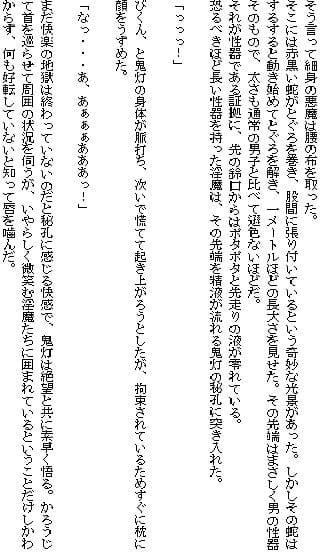 そう言って細身の悪魔は腰の布を取った。
そこには赤黒い蛇がとぐろを巻き、股間に張り付いているという奇妙な光景があった。しかしその蛇は
するすると動き始めてとぐろを解き、一メートルほどの長大さを見せた。その先端はまさしく男の性器
そのもので、太さも通常の男子と比べて遜色ないほどだ。
それが性器である証拠に、先の鈴口からはポタポタと先走りの液が零れている。
恐るべきほど長い性器を持った淫魔は、その先端を精液が流れる鬼灯の秘孔に突き入れた。
「っっっ！」
びくん、と鬼灯の身体が脈打ち、次いで慌てて起き上がろうとしたが、拘束されているためすぐに枕に
顔をうずめた。
「なっ・・・あ、あぁぁぁあああっ！」
まだ快楽の地獄は終わっていないのだと秘孔に感じる快感で、鬼灯は絶望と共に素早く悟る。かろうじ
て首を巡らせて周囲の状況を伺うが、いやらしく微笑む淫魔たちに囲まれているということだけしかわ
からず、何も好転していないと知って唇を噛んだ。